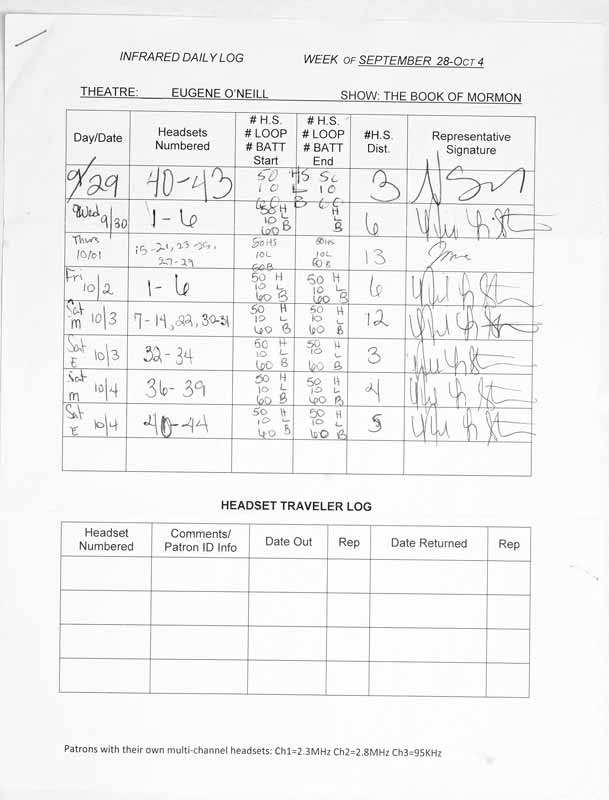 INFRARED DAILY LOG WEEK OF SEPTEMBER 28-OCT 4
THEATRE: EUGENE O'NEILL SHOW: THE BOOK OF MORMON
Day/Date Headsets Numbered # H.S. # LOOP # BATT Start # H.S. # LOOP # BATT End #H.S. Dist. Representative Signature
9/29 40-43 50 HS 50 3
10 L 10
60 B 60
Wed 9/30 1-6 50 H H 6
10 L L
60 B B
Thurs 10/01 15-21, 23-25, 27-29 50HS 50HS 13
10L 10L
60B 60B
Fri 10/2 1-6 50 H 50 H 6
10 L 10 L
60 B 60 B
Sat M 10/3 7-14, 22, 30-31 50 H 50 H 12
10 L 10 L
60 B 60 B
Sat E 10/3 32-34 50 H 50 H 3
10 L 10 L
60 B 60 B
Sat M 10/4 36-39 50 H 50 H 4
10 L 10 L
60 B 60 B
Sat E 10/4 40-44 50 H 50 H 5
10 L 10 L
60 B 60 B
HEADSET TRAVELER LOG
Headset Numbered Comments/ Patron ID Info Date Out Rep Date Returned Rep
Patrons with their own multi-channel headsets: Ch1=2.3MHz Ch2=2.8MHz Ch3=95KHz